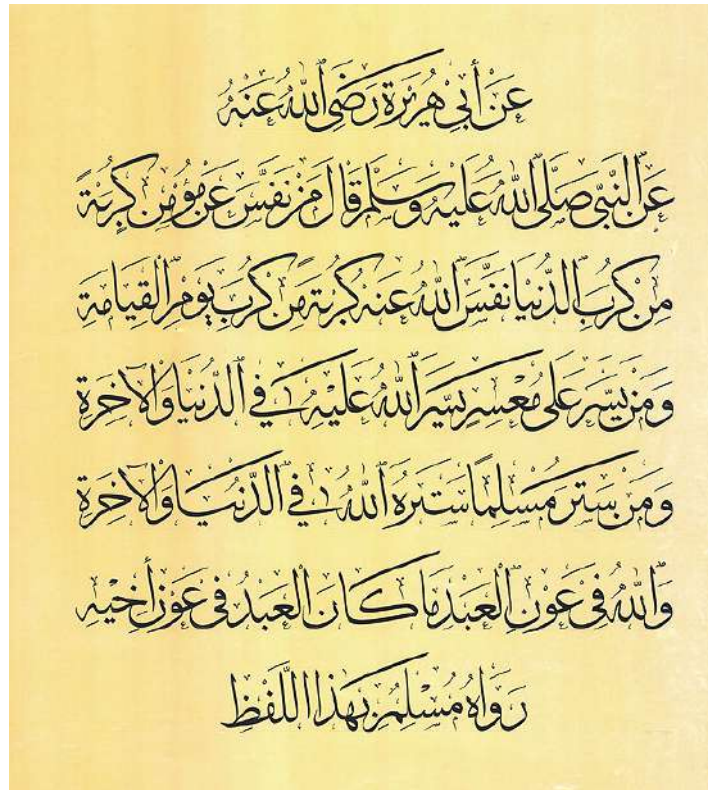 عَنْ أَبِي هُرَيْرَةَ رَضِيَ ٱللهُ عَنْهُ
عَنِ ٱلنَّبِيِّ صَلَّى ٱللهُ عَلَيْهِ وَسَلَّمَ قَالَ مَنْ نَفَّسَ عَنْ مُؤْمِنٍ كُرْبَةً
مِنْ كُرَبِ ٱلدُّنْيَا نَفَّسَ ٱللهُ عَنْهُ كُرْبَةً مِنْ كُرَبِ يَوْمِ ٱلْقِيَامَةِ
وَمَنْ يَسَّرَ عَلَى مُعْسِرٍ يَسَّرَ ٱللهُ عَلَيْهِ فِي ٱلدُّنْيَا وَٱلْآخِرَةِ
وَمَنْ سَتَرَ مُسْلِمًا سَتَرَهُ ٱللهُ فِي ٱلدُّنْيَا وَٱلْآخِرَةِ
وَٱللهُ فِي عَوْنِ ٱلْعَبْدِ مَا كَانَ ٱلْعَبْدُ فِي عَوْنِ أَخِيْهِ
رَوَاهُ مُسْلِمٌ بِهَذَا اللَّفْظِ